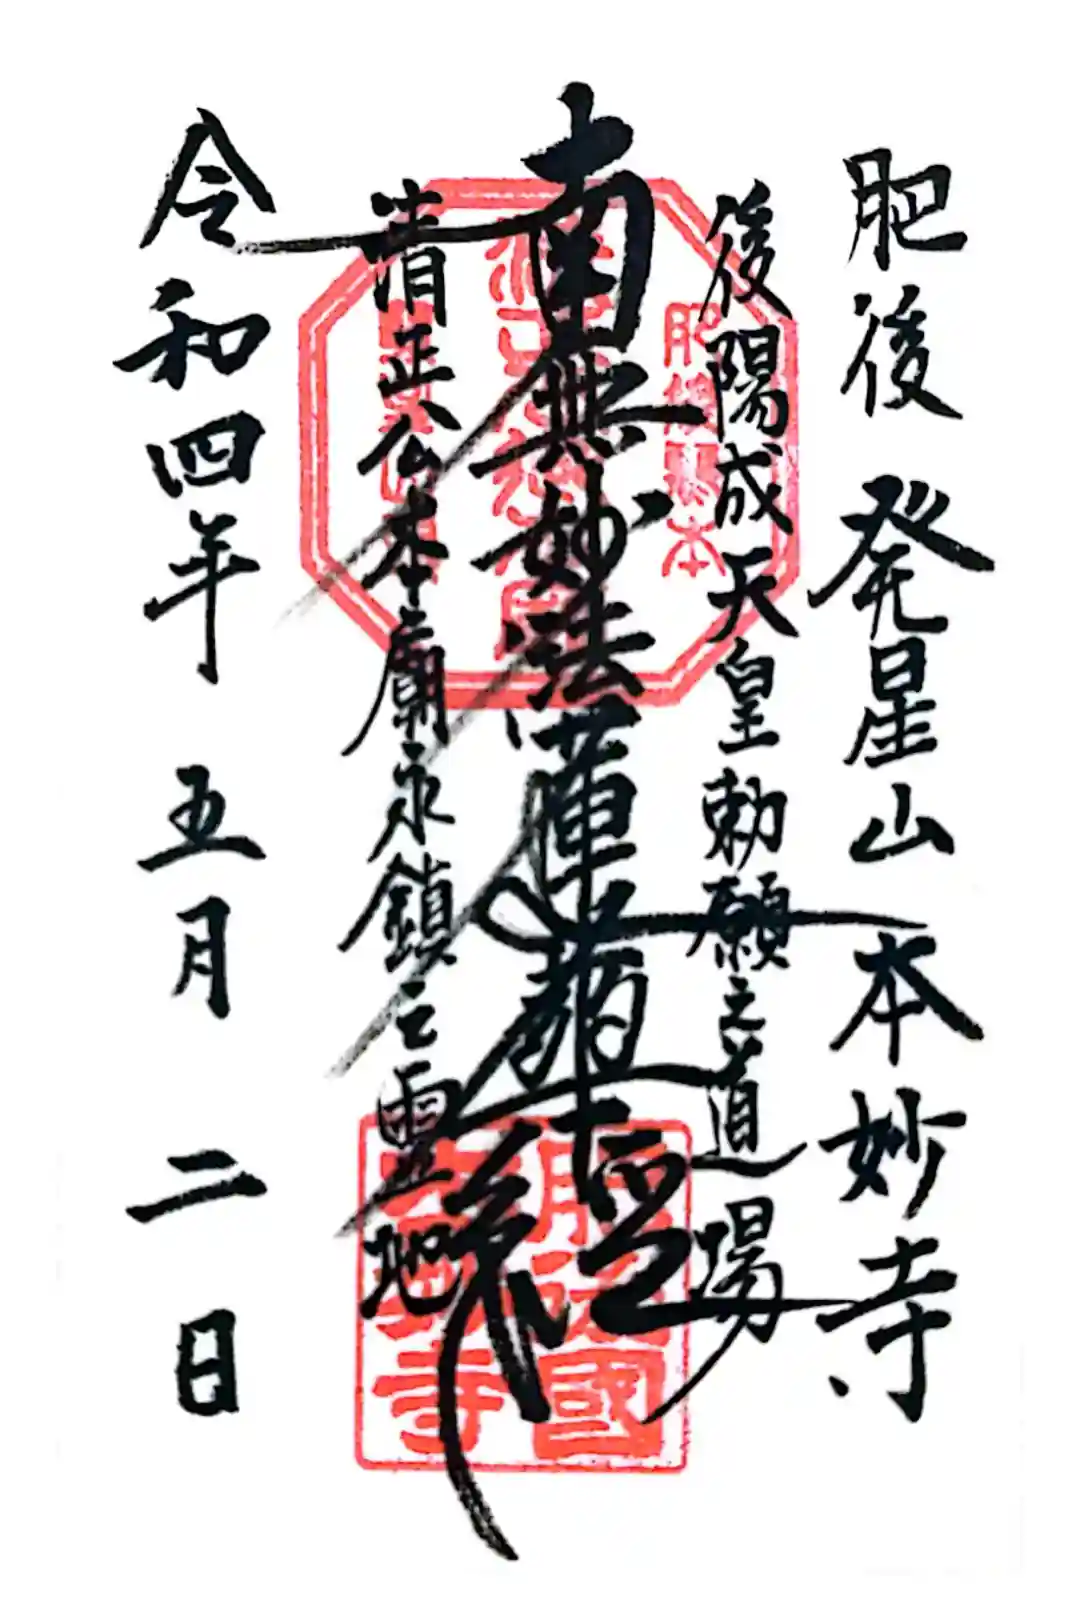 肥後 発星山 本妙寺
後陽成天皇勅願之道場
南無妙法蓮華経
清正公本廟永鎮之霊地
令和四年 五月 二日
肥後熊本
肥後國
本妙寺